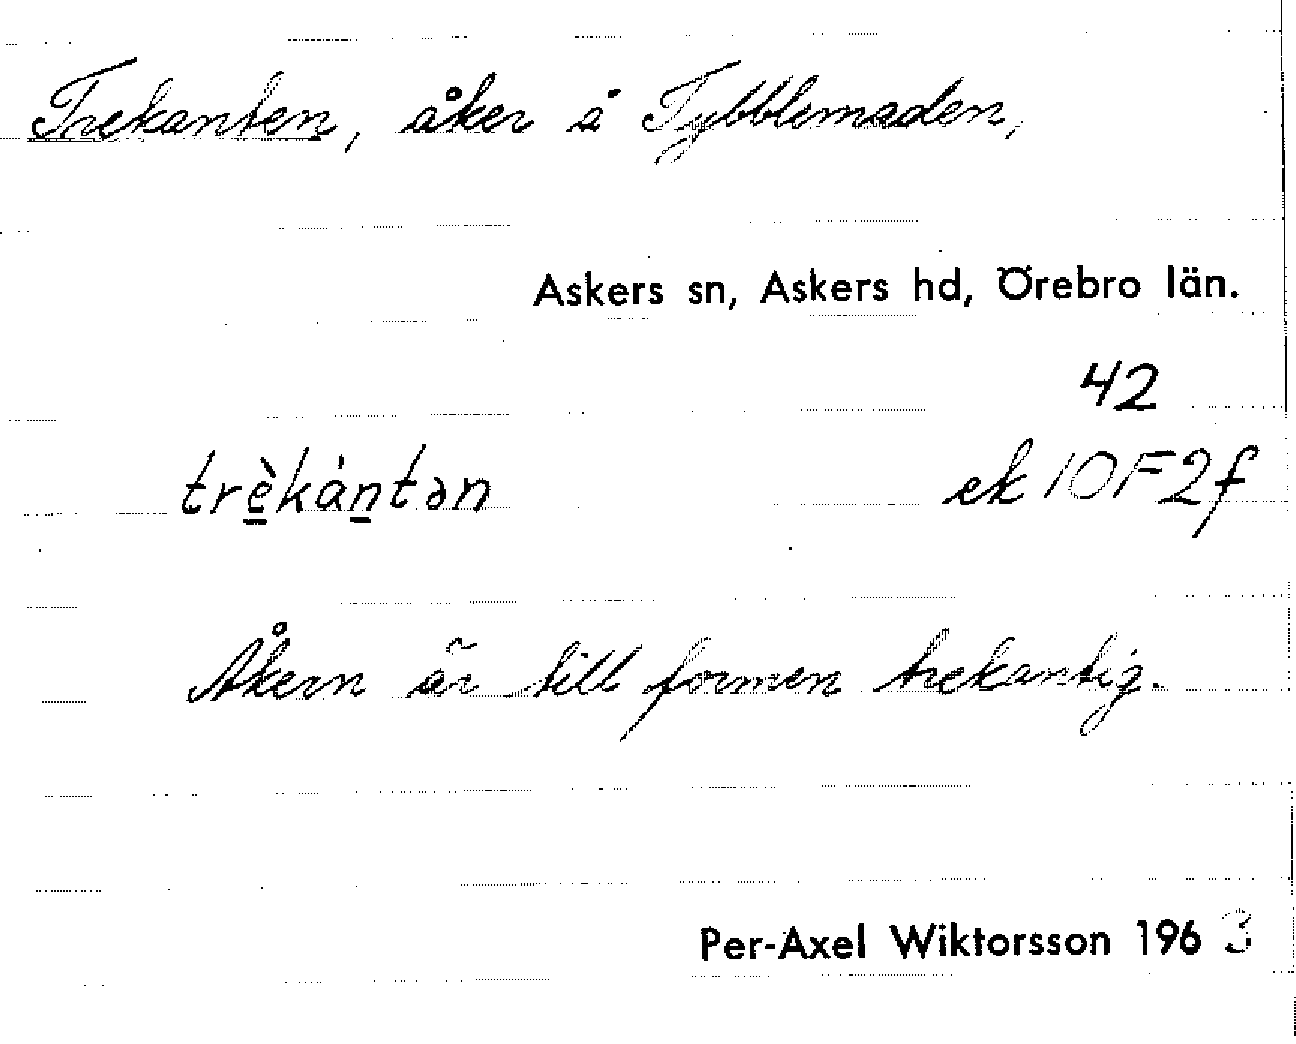 Trekanten, åker å Tybblemaden,
Askers sn, Askers hd, Örebro län.
42
trè̱kàṉtən ek 10F2f
Åkern är till formen trekantig.
Per-Axel Wiktorsson 1963